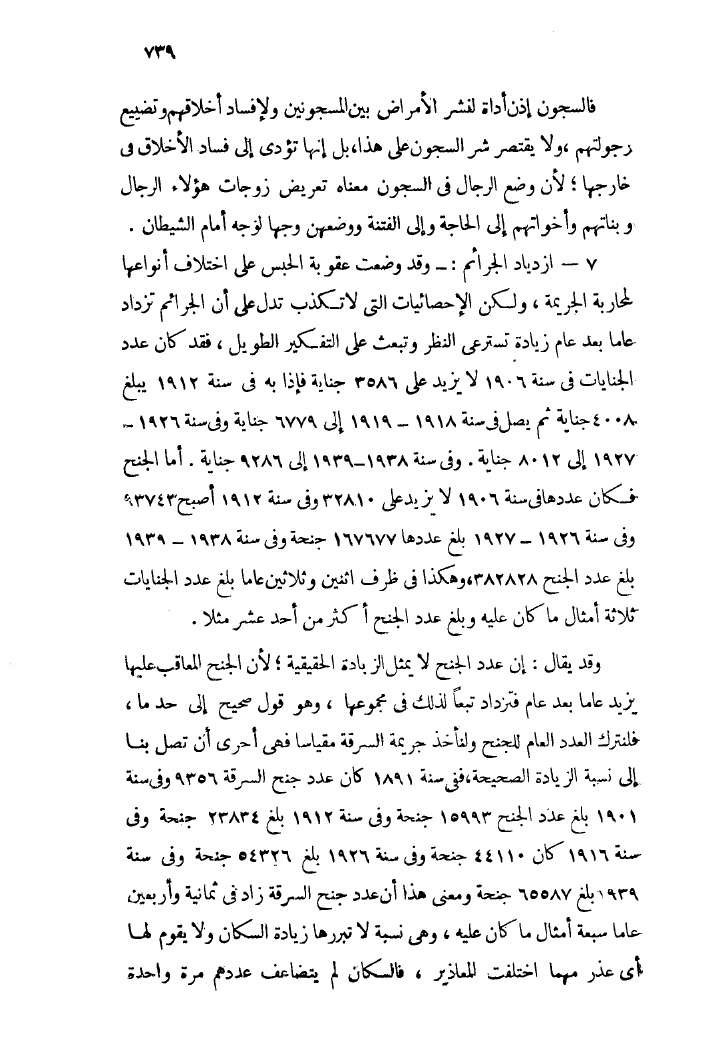 ٧٣٩
فالسجون إذن أداة لنشر الأمراض بين المسجونين ولإفساد أخلاقهم وتضييع
رجولتهم ، ولا يقتصر شر السجون على هذا، بل إنها تؤدى إلى فساد الأخلاق فى
خارجها ؛ لأن وضع الرجال فى السجون معناه تعريض زوجات هؤلاء الرجال
وبناتهم وأخواتهم إلى الحاجة وإلى الفتنة ووضعهن وجها لوجه أمام الشيطان .
٧ — ازدياد الجرائم : ــ وقد وضعت عقوبة الحبس على اختلاف أنواعها
لمحاربة الجريمة ، ولكن الإحصائيات التى لا تكذب تدل على أن الجرائم تزداد
عاما بعد عام زيادة تسترعى النظر وتبعث على التفكير الطويل ، فقد كان عدد
الجنايات فى سنة ١٩٠٦ لا يزيد على ٣٥٨٦ جناية فإذا به فى سنة ١٩١٢ يبلغ
٤٠٠٨ جناية ثم يصل فى سنة ١٩١٨ — ١٩١٩ إلى ٦٧٧٩ جناية وفى سنة ١٩٢٦ —
١٩٢٧ إلى ٨٠١٢ جناية . وفى سنة ١٩٣٨–١٩٣٩ إلى ٩٢٨٦ جناية . أما الجنح
فكان عددها فى سنة ١٩٠٦ لا يزيد على ٣٢٨١٠ وفى سنة ١٩١٢ أصبح
وفى سنة ١٩٢٦ — ١٩٢٧ بلغ عددها ١٦٧٦٧٧ جنحة وفى سنة ١٩٣٨ — ١٩٣٩
بلغ عدد الجنح ٣٨٢٨٢٨، وهكذا فى ظرف اثنين وثلاثين عاما بلغ عدد الجنايات
ثلاثة أمثال ما كان عليه وبلغ عدد الجنح أكثر من أحد عشر مثلا .
وقد يقال : إن عدد الجنح لا يمثل الزيادة الحقيقية ؛ لأن الجنح المعاقب عليها
يزيد عاما بعد عام فتزداد تبعاً لذلك فى مجموعها ، وهو قول صحيح إلى حد ما ،
فلنترك العدد العام للجنح ولنأخذ جريمة السرقة مقياسا فهى أحرى أن تصل بنا
إلى نسبة الزيادة الصحيحة، ففى سنة ١٨٩١ كان عدد جنح السرقة ٩٣٥٦ وفى سنة
١٩٠١ بلغ عدد الجنح ١٥٩٩٣ جنحة وفى سنة ١٩١٢ بلغ ٢٣٨٣٤ جنحة وفى
سنة ١٩١٦ كان ٤٤١١٠ جنحة وفى سنة ١٩٢٦ بلغ ٥٤٣٢٦ جنحة وفى سنة
١٩٣٩ بلغ ٦٥٥٨٧ جنحة ومعنى هذا أن عدد جنح السرقة زاد فى ثمانية وأربعين
عاما سبعة أمثال ما كان عليه ، وهى نسبة لا تبررها زيادة السكان ولا يقوم لها
أى عذر مهما اختلفت المعاذير ، فالسكان لم يتضاعف عددهم مرة واحدة